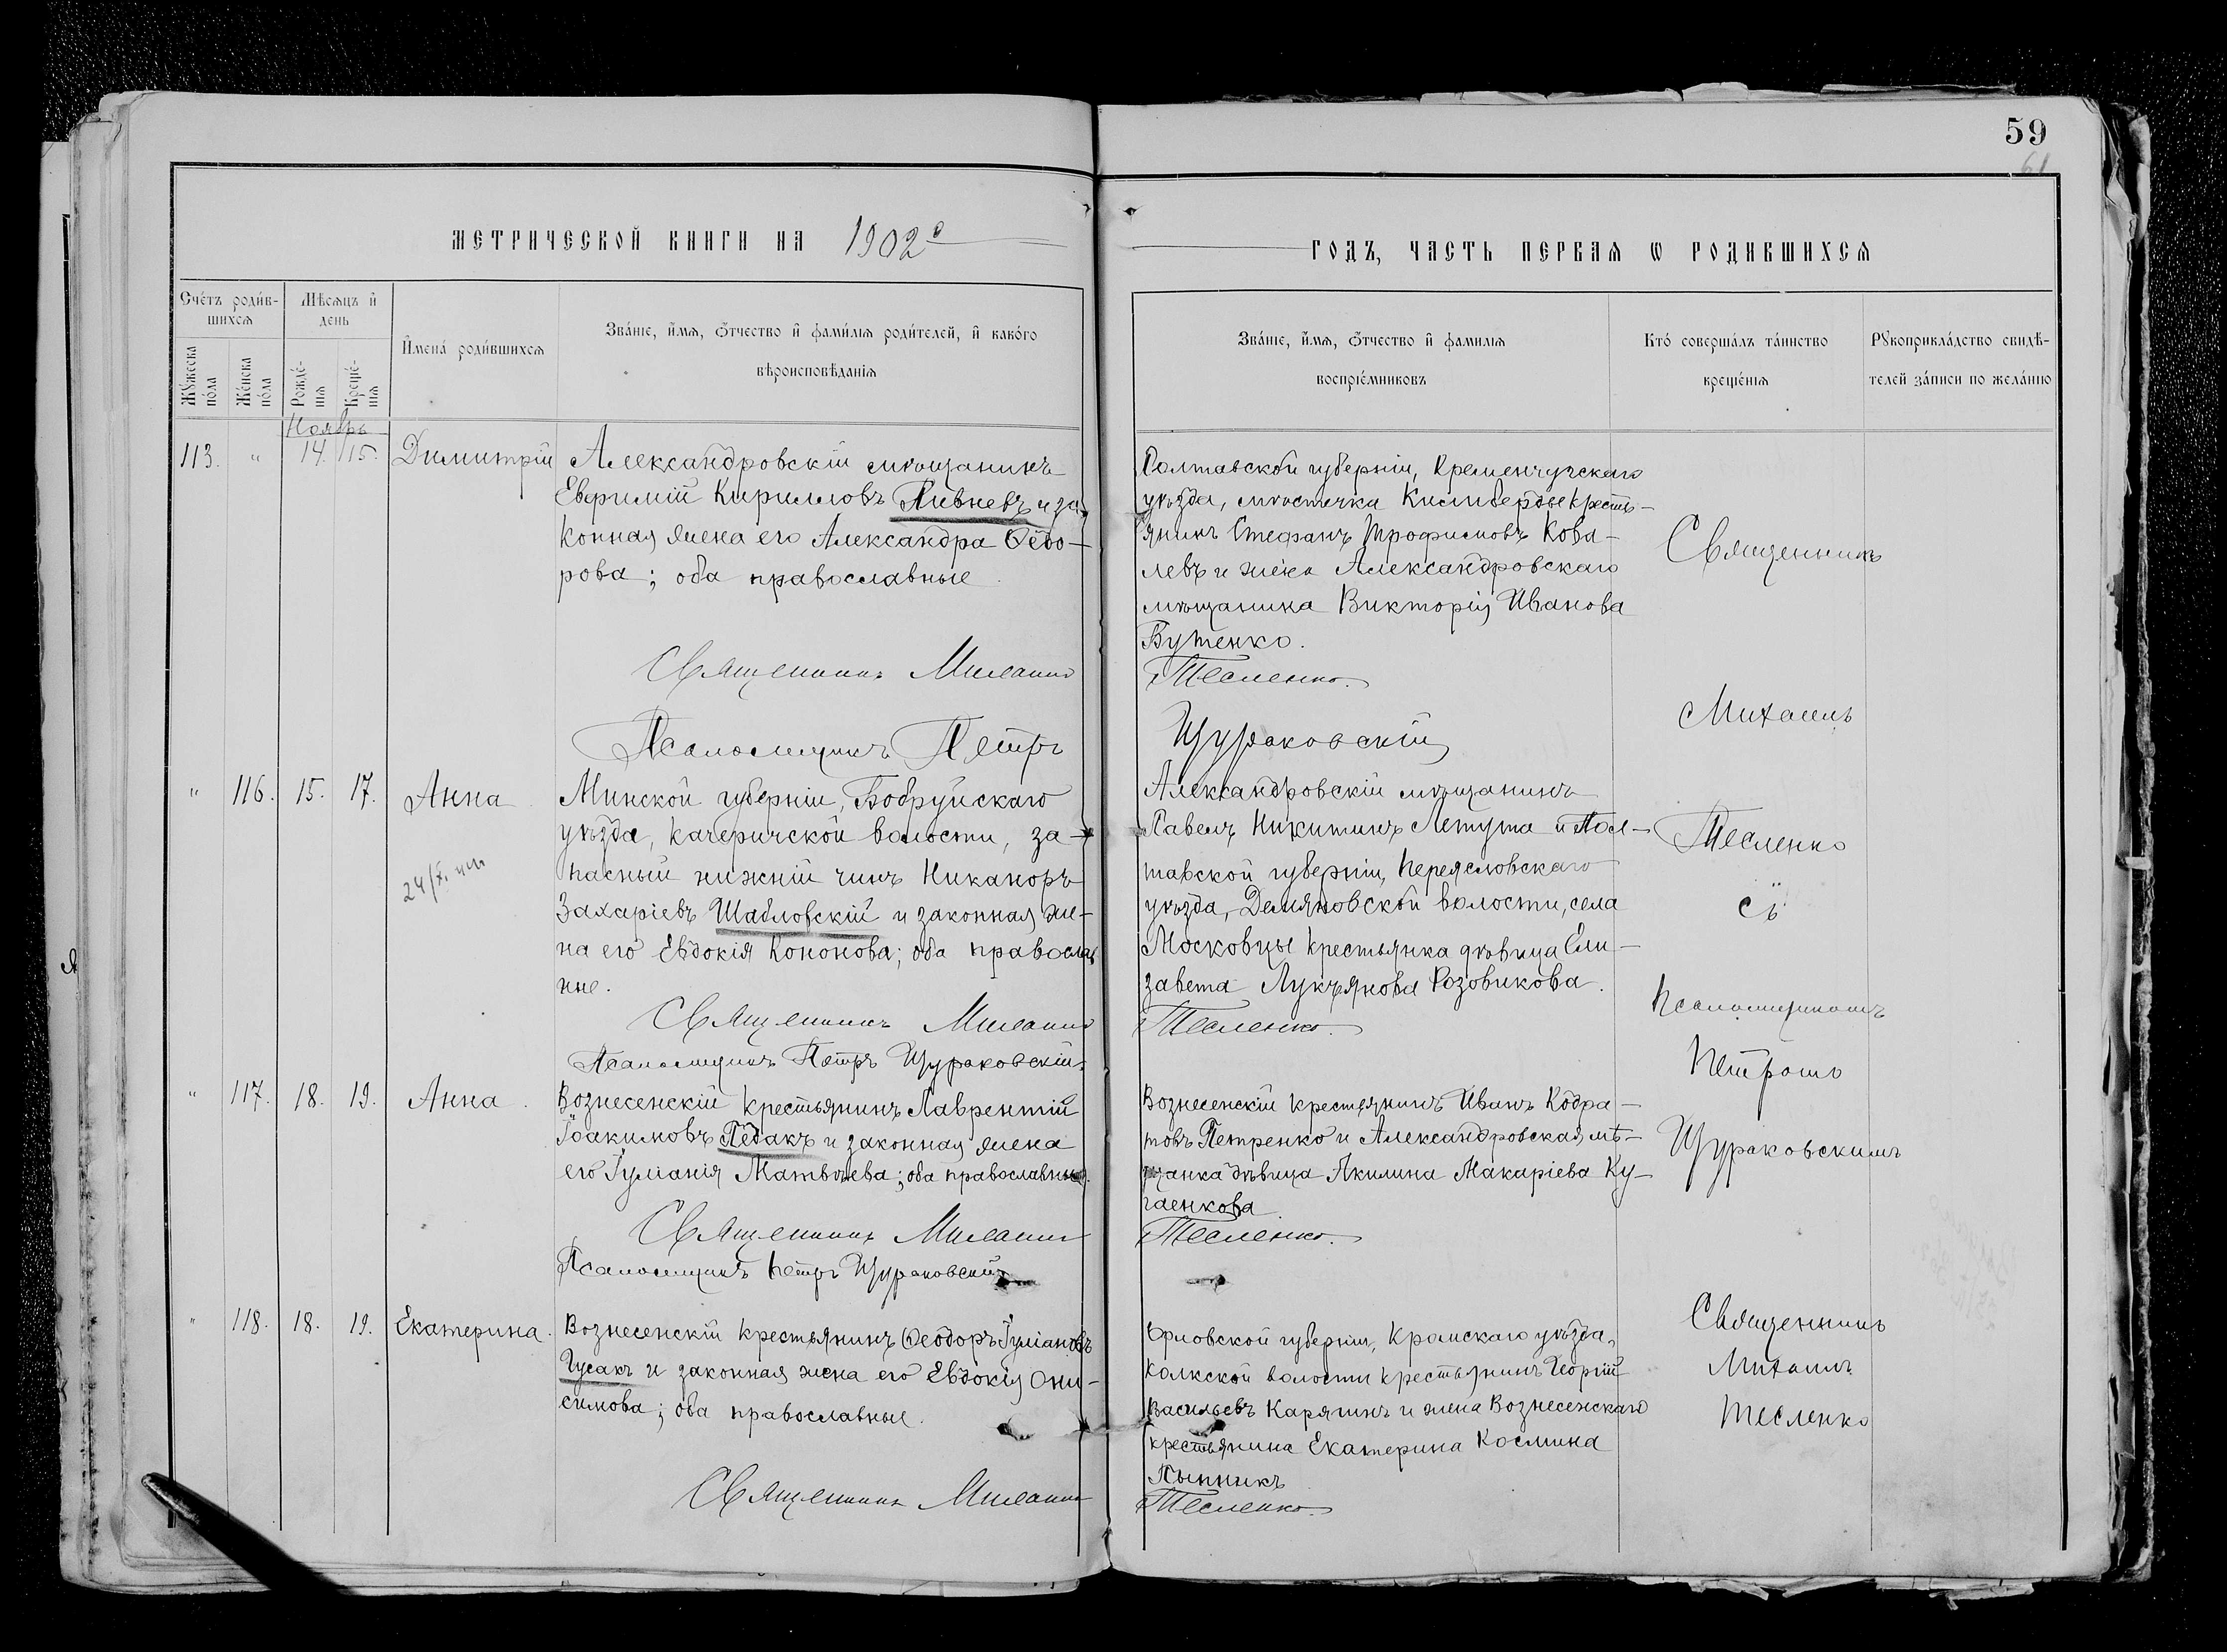 59
61
МЕТРИЧЕСКОЙ КНИГИ НА 1902й
ГОДЪ, ЧАСТЬ ПЕРВАЯ Ѡ РОДИВШИХСЯ
Счетъ родив-
шихся
Мѣсяцъ и
день
Мужеска
пола
Женска
пола
Рожде-
нія
Креще-
нія
Имена родившихся
Званіе, имя, отчество и фамилія родителей, и какого
вѣроисповѣданія
Званіе, имя, отчество и фамилія
воспріемниковъ
Кто совершалъ таинство
крещенія
Рукоприкладство свидѣ-
телей записи по желанію
Ноябрь
113. " 14. 15. Димитрій
Александровскій мѣщанинъ
Евфимій Кирилловъ Пивневъ и за-
конная жена его Александра Ѳедо-
рова; оба православные.
Священникъ Михаилъ
Псаломщикъ Петръ
Полтавской губерніи, Кременчугскаго
уѣзда, мѣстечка Кишибердые кресть-
янинъ Стефанъ Трофимовъ Кова-
левъ и жена Александровскаго
мѣщанина Викторія Иванова
Бутенко.
Тесленко.
Щураковскій
" 116. 15. 17. Анна
Минской губерніи, Бобруйскаго
уѣзда, Качеричской волости, за-
пасный нижній чинъ Никаноръ
Захаріевъ Шабловскій и законная же-
на его Евдокія Кононова; оба православ
ные.
Священникъ Михаилъ
Псаломщикъ Петръ Щураковскій
Александровскій мѣщанинъ
Павелъ Никитинъ Летута и Пол-
тавской губерніи, Переясловскаго
уѣзда, Демяновской волости, села
Московцы крестьянка дѣвица Ели-
завета Лукъянова Розовикова.
Тесленко.
" 117. 18. 19. Анна.
Вознесенскій крестьянинъ Лаврентій
Іоакимовъ Педакъ и законная жена
его Іуліанія Матвѣева; оба православные.
Священникъ Михаилъ
Псаломщикъ Петръ Щураковскій
Вознесенскій крестьянинъ Иванъ Кодра-
товъ Петренко и Александровская мѣ-
щанка дѣвица Акилина Макаріева Ку-
гаенкова
Тесленко.
" 118. 18. 19. Екатерина.
Вознесенскій крестьянинъ Ѳеодоръ Іуліановъ
Гусакъ и законная жена его Евдокія Они-
симова; оба православные.
Священникъ Михаилъ
Орловской губерніи, Кромскаго уѣзда,
волости крестьянинъ Георгій
Васильевъ Карягинъ и жена Вознесенскаго
крестьянина Екатерина Космина
Пынникъ
Тесленко.
Священникъ
Михаилъ
Тесленко
съ
Псаломщикомъ
Петромъ
Щураковскимъ
Священникъ
Михаилъ
Тесленко